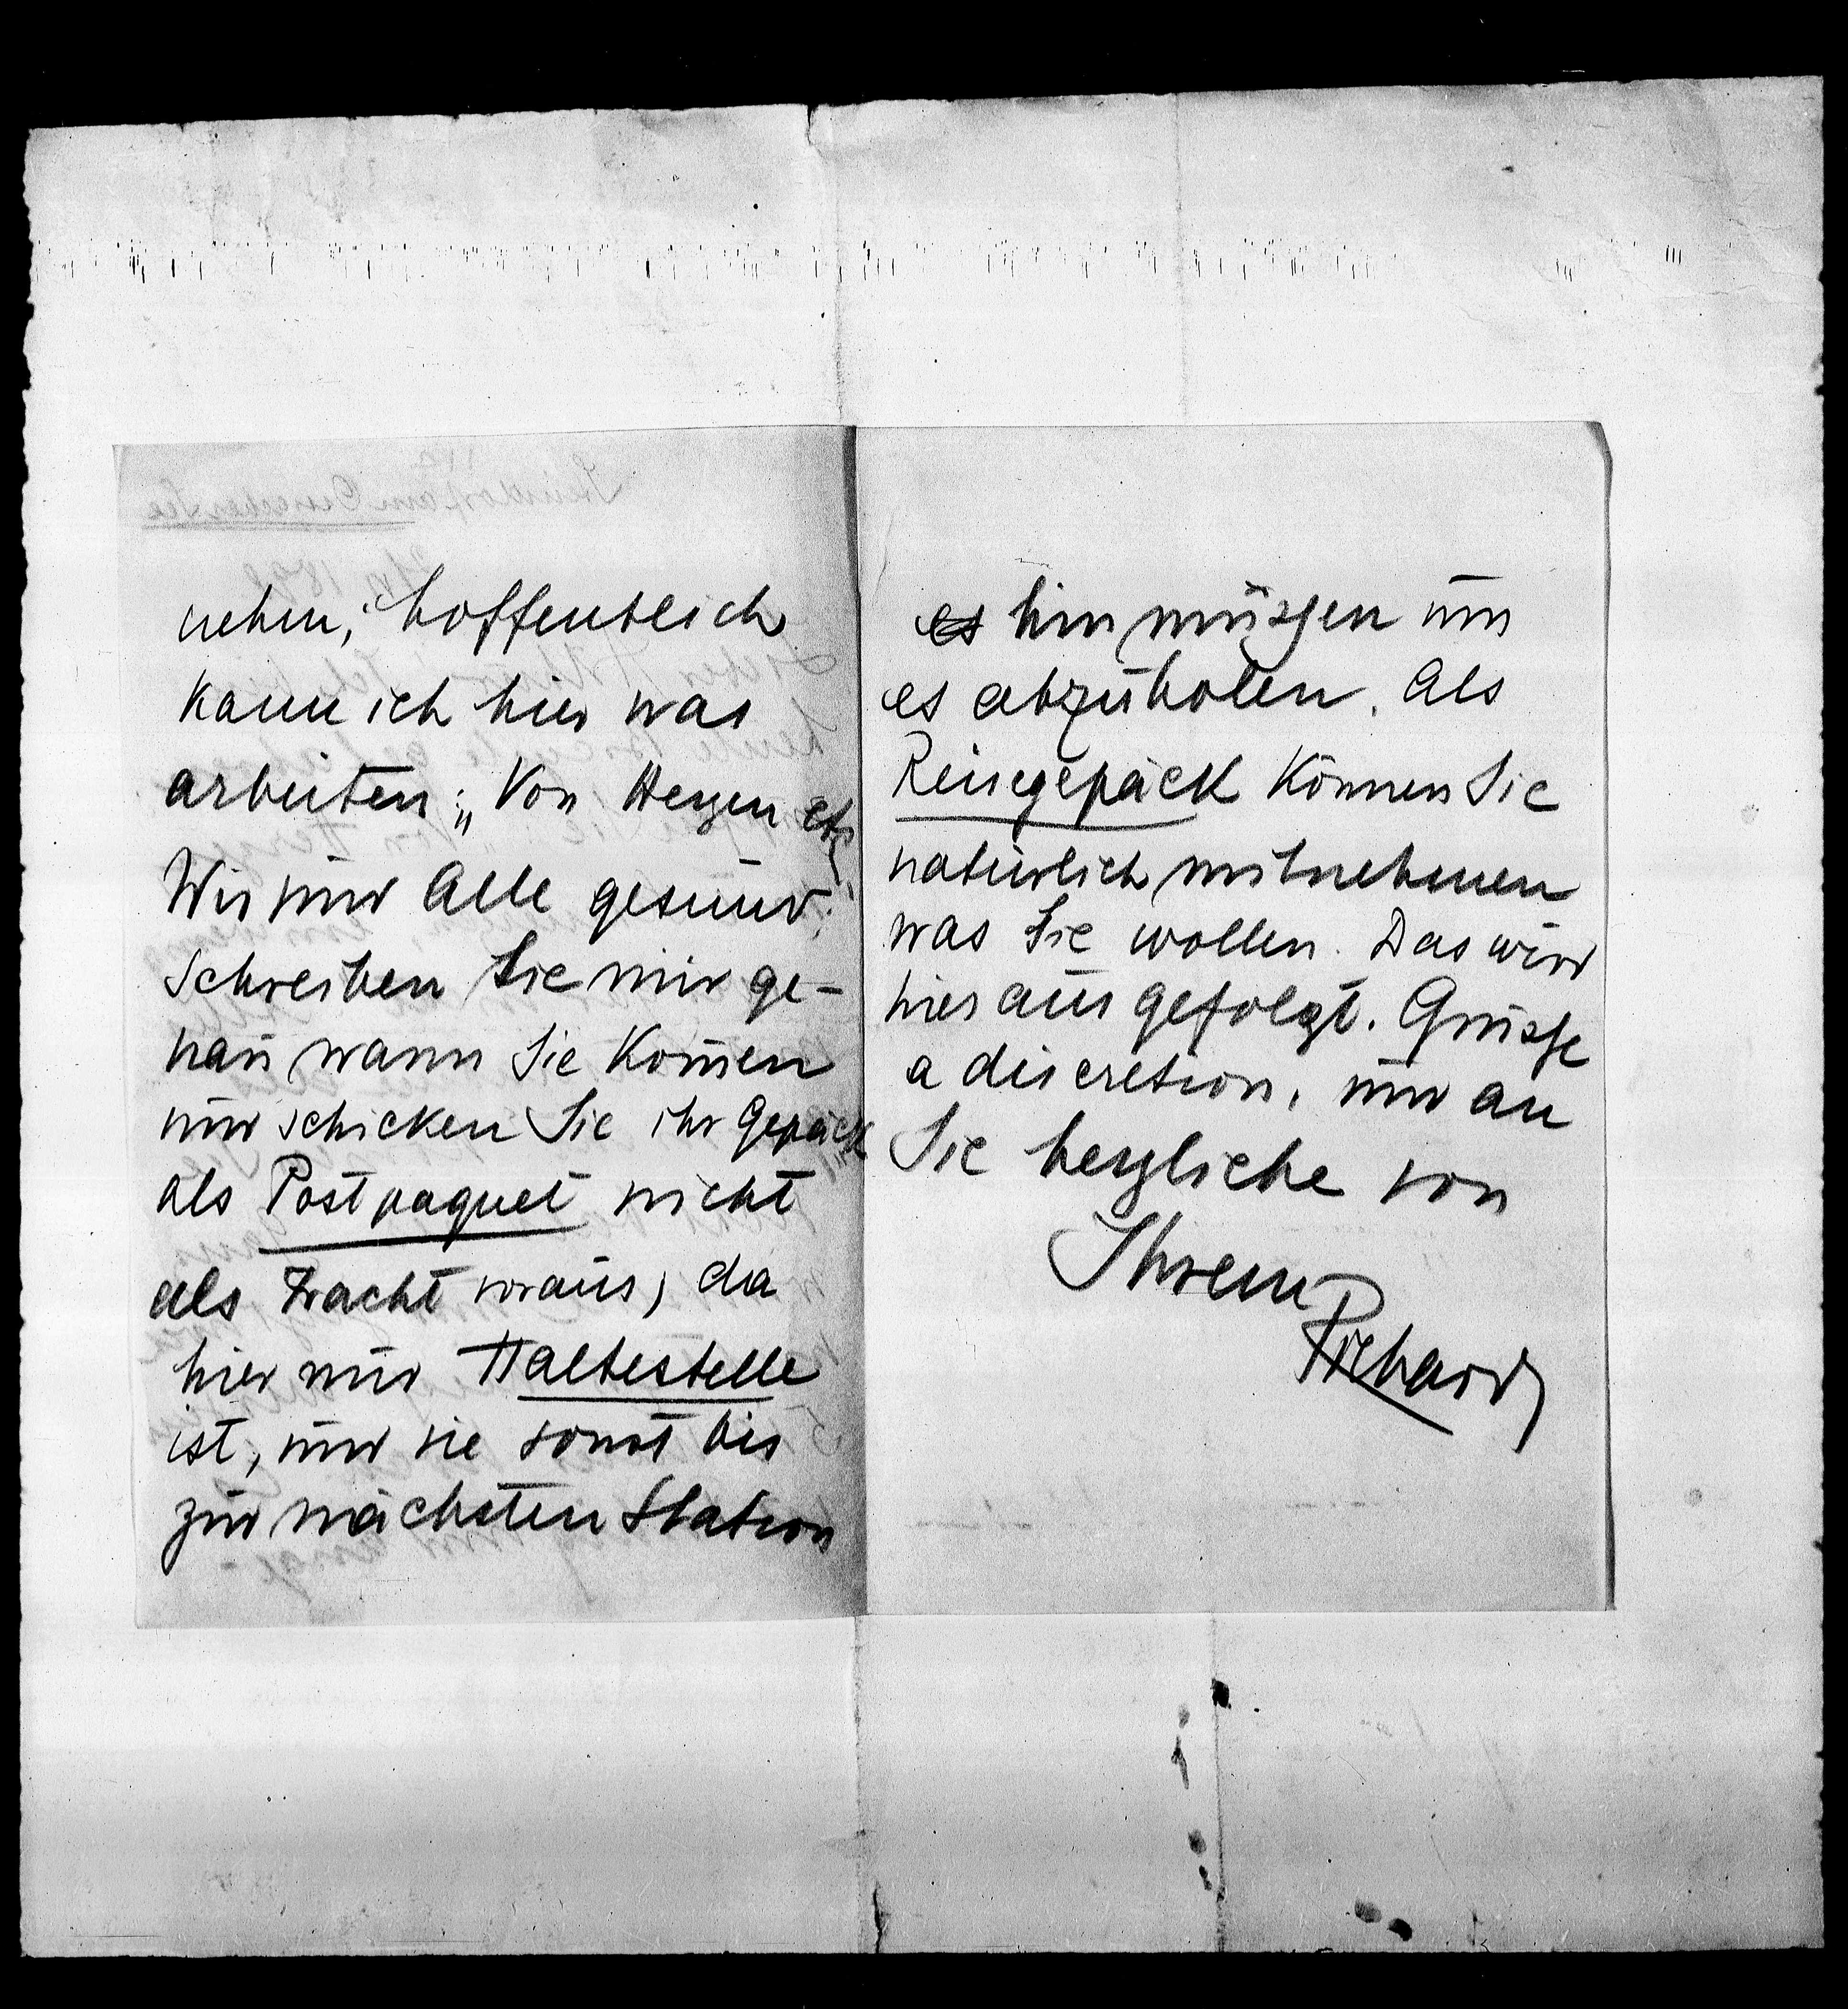 nehm; hoffentlich
kann ich hier was
arbeiten; „Von Herzen etc
Wir sind Alle gesund;
schreiben Sie mir ge-
nau wann Sie kom̄en
und schicken Sie ihr Gepäck
als Postpaquet nicht
als Fracht voraus, da
hier nur Haltestelle
ist, und sie sonst bis
zur nächsten Station
es hin müssen um
es abzuholen. Als
Reisegepäck können Sie
natürlich mitnehmen
was Sie wollen. Das wird
hier ausgefolgt. Grüsse
a discretion, und an
Sie herzliche von
Ihrem
Richard